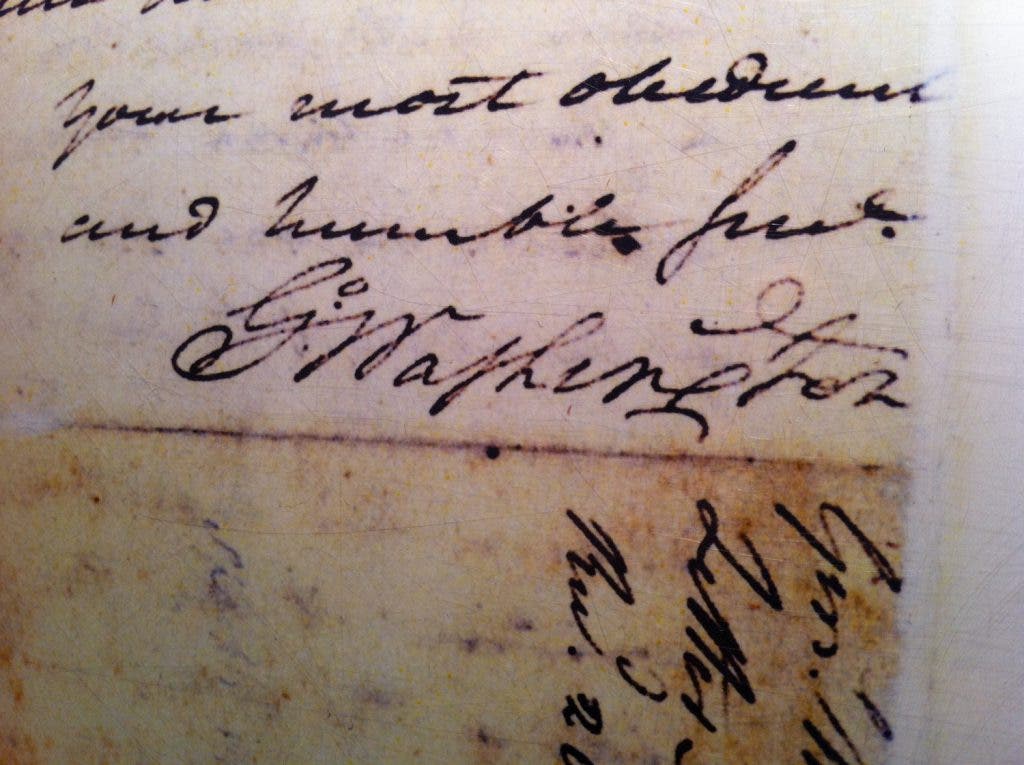 your most obedient
and humble Serv.
G:Washington
Gen. W
Letter